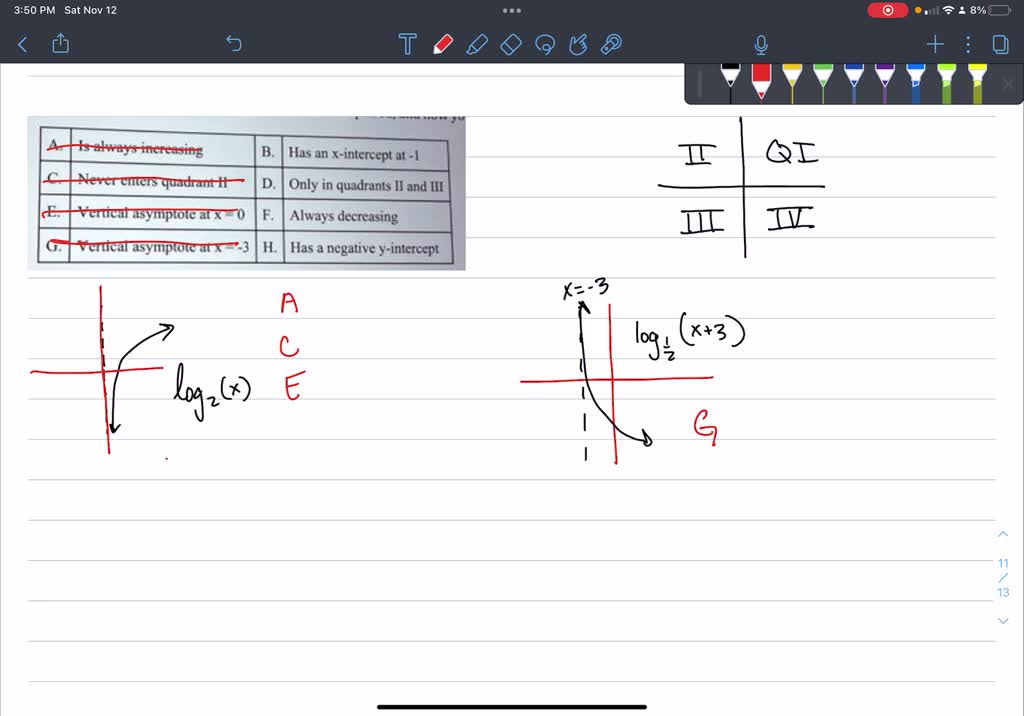 3:50 PM Sat Nov 12
8%
T
A. Is always increasing B. Has an x-intercept at -1
C. Never enters quadrant II D. Only in quadrants II and III
E. Vertical asymptote at x = 0 F. Always decreasing
G. Vertical asymptote at x = -3 H. Has a negative y-intercept
II QI
III IV
A
C
E
log₂(x)
x=-3
log½(x+3)
G
11
/
13